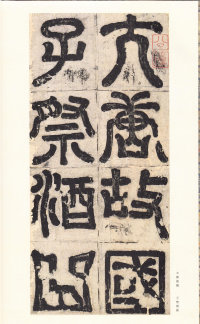 大唐故國
子祭酒曲